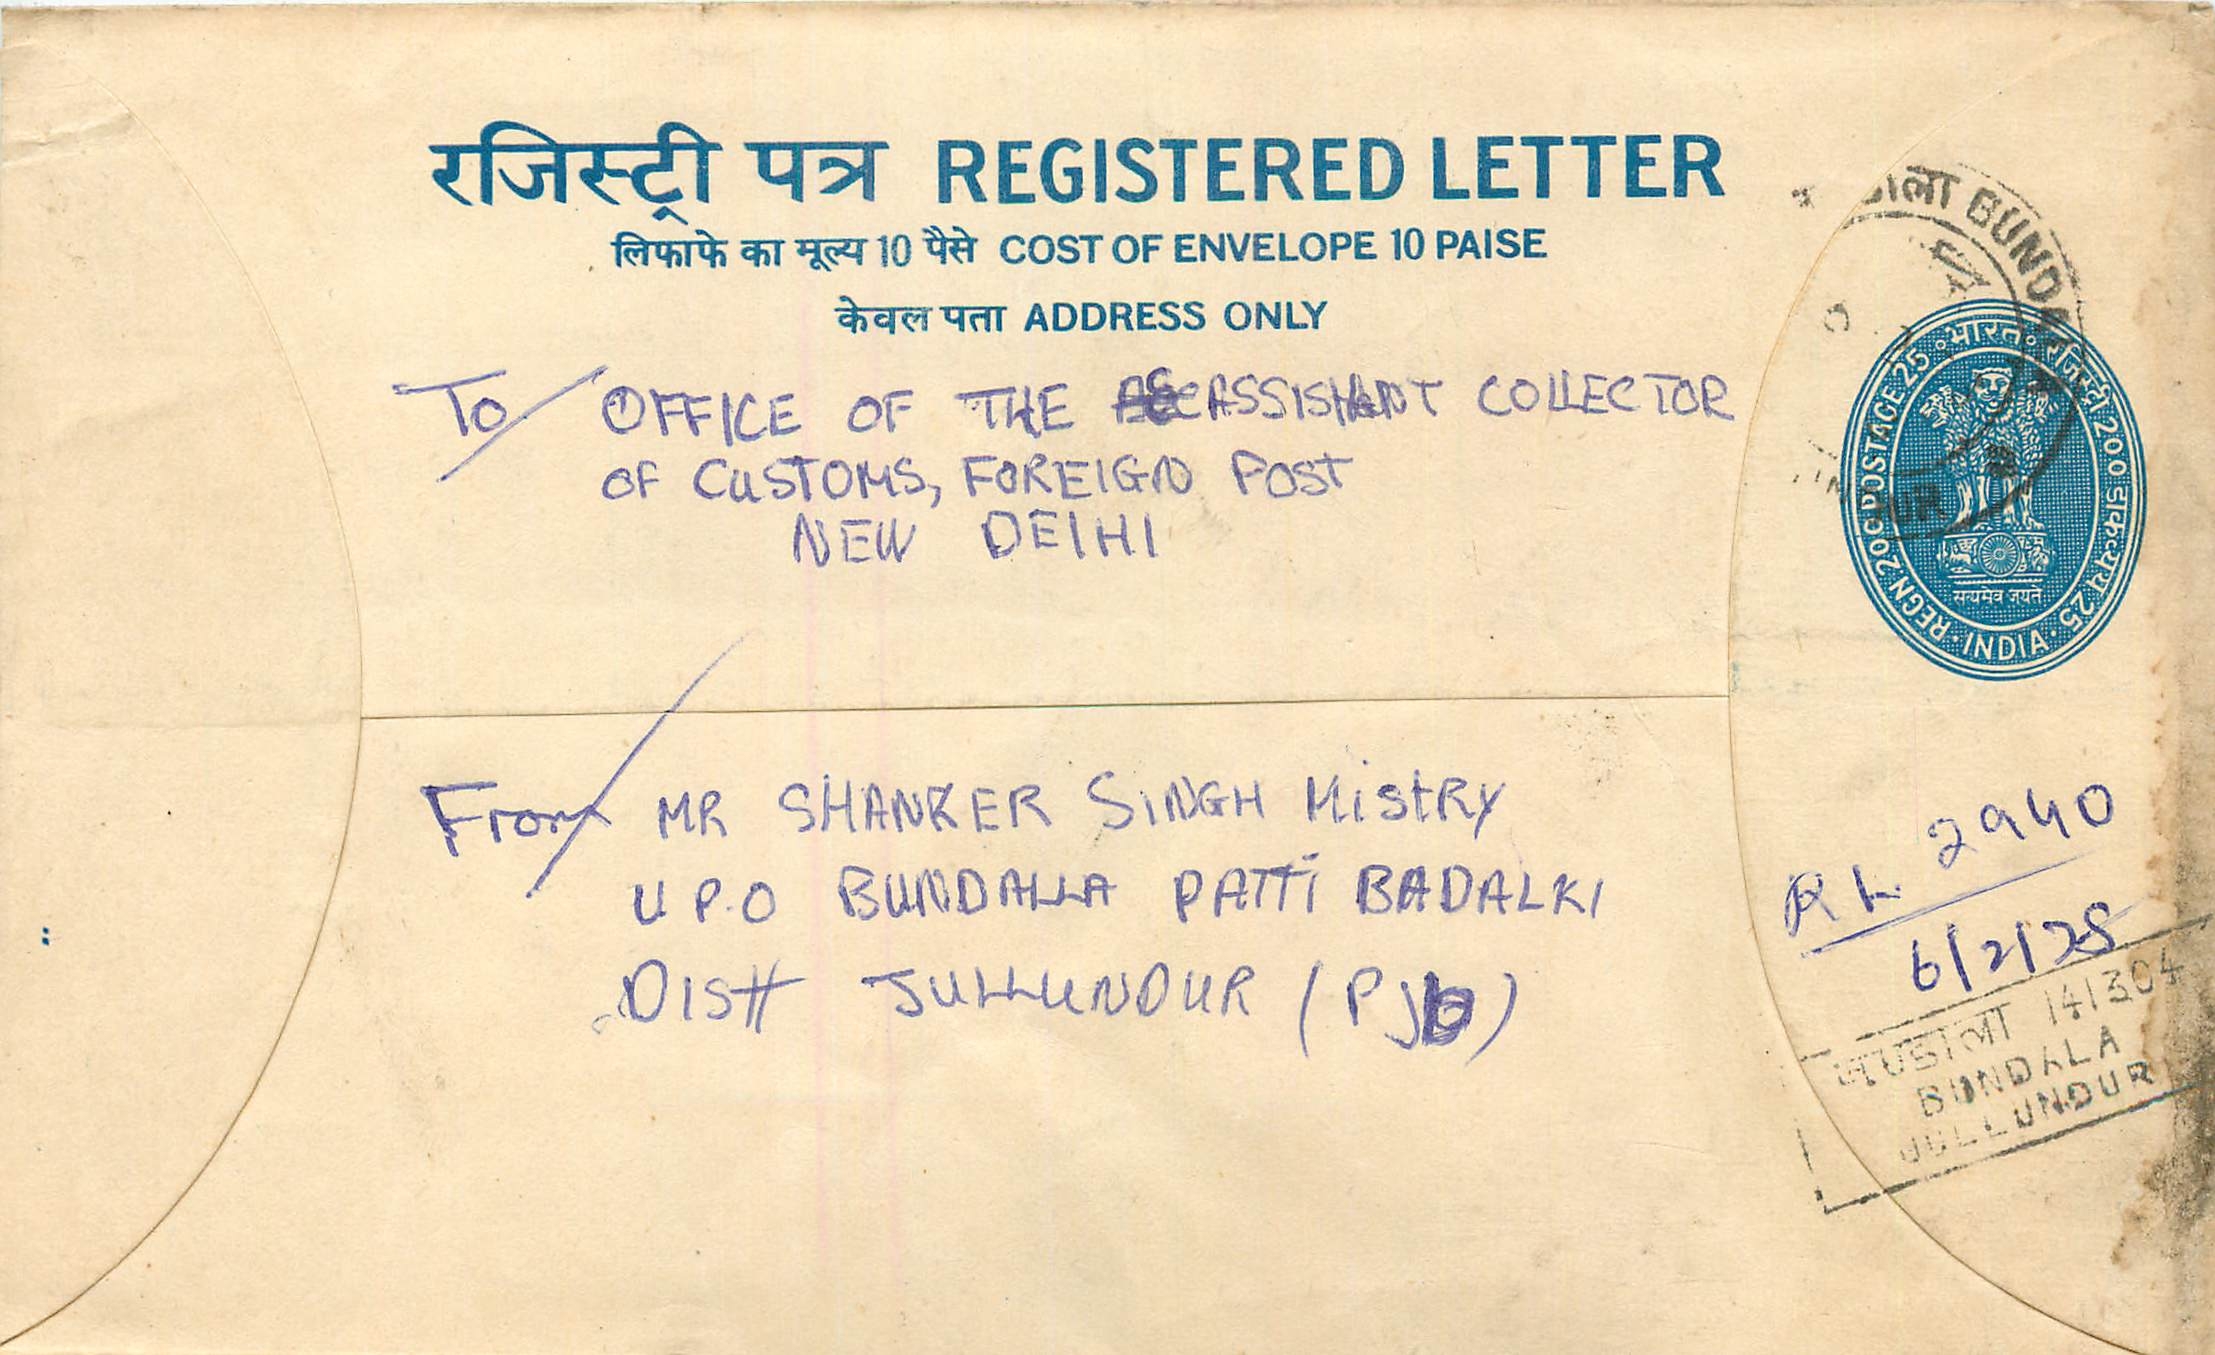 रजिस्ट्री पत्र REGISTERED LETTER
लिफाफे का मूल्य 10 पैसे COST OF ENVELOPE 10 PAISE
केवल पता ADDRESS ONLY
To OFFICE OF THE ASSISTANT COLLECTOR
OF CUSTOMS, FOREIGN POST
NEW DELHI
BUNDA
भारत रजिस्ट्री 200 डाकव्यय 25
REGN 200 POSTAGE 25
सत्यमेव जयते
INDIA
From MR SHANKER SINGH MistRY
U P.O BUNDALLA PATTi BADALKI
DIStt JULLUNDUR (PJb)
RL 2940
6/2/78
141304
BUNDALA
JULLUNDUR